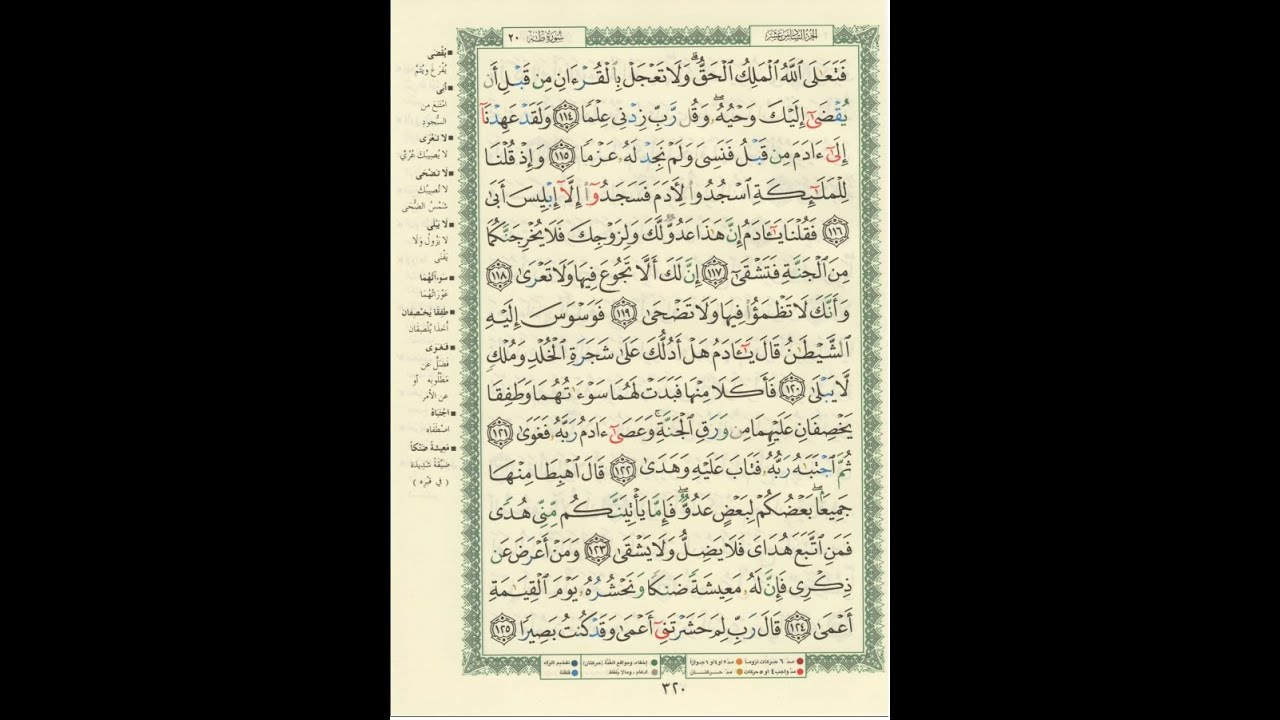 الجزء السادس عشر
سورة طه ٢٠
فَتَعَٰلَى ٱللَّهُ ٱلْمَلِكُ ٱلْحَقُّ ۗ وَلَا تَعْجَلْ بِٱلْقُرْءَانِ مِن قَبْلِ أَن
يُقْضَىٰٓ إِلَيْكَ وَحْيُهُۥ ۖ وَقُل رَّبِّ زِدْنِى عِلْمًا ١١٤ وَلَقَدْ عَهِدْنَآ
إِلَىٰٓ ءَادَمَ مِن قَبْلُ فَنَسِىَ وَلَمْ نَجِدْ لَهُۥ عَزْمًا ١١٥ وَإِذْ قُلْنَا
لِلْمَلَٰٓئِكَةِ ٱسْجُدُوا۟ لِءَادَمَ فَسَجَدُوٓا۟ إِلَّآ إِبْلِيسَ أَبَىٰ
١١٦ فَقُلْنَا يَٰٓـَٔادَمُ إِنَّ هَٰذَا عَدُوٌّ لَّكَ وَلِزَوْجِكَ فَلَا يُخْرِجَنَّكُمَا
مِنَ ٱلْجَنَّةِ فَتَشْقَىٰٓ ١١٧ إِنَّ لَكَ أَلَّا تَجُوعَ فِيهَا وَلَا تَعْرَىٰ ١١٨
وَأَنَّكَ لَا تَظْمَؤُا۟ فِيهَا وَلَا تَضْحَىٰ ١١٩ فَوَسْوَسَ إِلَيْهِ
ٱلشَّيْطَٰنُ قَالَ يَٰٓـَٔادَمُ هَلْ أَدُلُّكَ عَلَىٰ شَجَرَةِ ٱلْخُلْدِ وَمُلْكٍ
لَّا يَبْلَىٰ ١٢٠ فَأَكَلَا مِنْهَا فَبَدَتْ لَهُمَا سَوْءَٰتُهُمَا وَطَفِقَا
يَخْصِفَانِ عَلَيْهِمَا مِن وَرَقِ ٱلْجَنَّةِ ۚ وَعَصَىٰٓ ءَادَمُ رَبَّهُۥ فَغَوَىٰ ١٢١
ثُمَّ ٱجْتَبَٰهُ رَبُّهُۥ فَتَابَ عَلَيْهِ وَهَدَىٰ ١٢٢ قَالَ ٱهْبِطَا مِنْهَا
جَمِيعًۢا ۖ بَعْضُكُمْ لِبَعْضٍ عَدُوٌّ ۖ فَإِمَّا يَأْتِيَنَّكُم مِّنِّى هُدًى
فَمَنِ ٱتَّبَعَ هُدَاىَ فَلَا يَضِلُّ وَلَا يَشْقَىٰ ١٢٣ وَمَنْ أَعْرَضَ عَن
ذِكْرِى فَإِنَّ لَهُۥ مَعِيشَةً ضَنكًا وَنَحْشُرُهُۥ يَوْمَ ٱلْقِيَٰمَةِ
أَعْمَىٰ ١٢٤ قَالَ رَبِّ لِمَ حَشَرْتَنِىٓ أَعْمَىٰ وَقَدْ كُنتُ بَصِيرًا ١٢٥
يُقْضى
يُفرَغ ويُتَمَّ
أبى
امْتَنَعَ من
السُّجودِ
لا تَعْرَى
لا يُصيبُك عُرْيٌ
لا تَضْحَى
لا تُصيبُك
شَمْسُ الضُّحى
لا يَبْلَى
لا يزُولُ ولا
يَفْنَى
سَوْءآتُهُما
عَوْراتُهُما
طَفِقا يَخْصِفان
أخَذا يُلْصِقان
فَغَوَى
فَضَلَّ عن
مَطْلُوبِه أو
عن الأمر
اجْتَباهُ
اصْطَفاه
مَعِيشَةً ضَنْكاً
ضَيِّقَةً شديدة
( في قبره )
مدّ ٦ حركات لزوماً
مدّ ٢ أو ٤ أو ٦ جوازاً
إخفاء، ومواقع الغُنَّة (حركتان)
تفخيم الراء
مدّ واجب ٤ أو ٥ حركات
مدّ حركتان
ادغام، ومالا يُلفَظ
قلقلة
٣٢٠